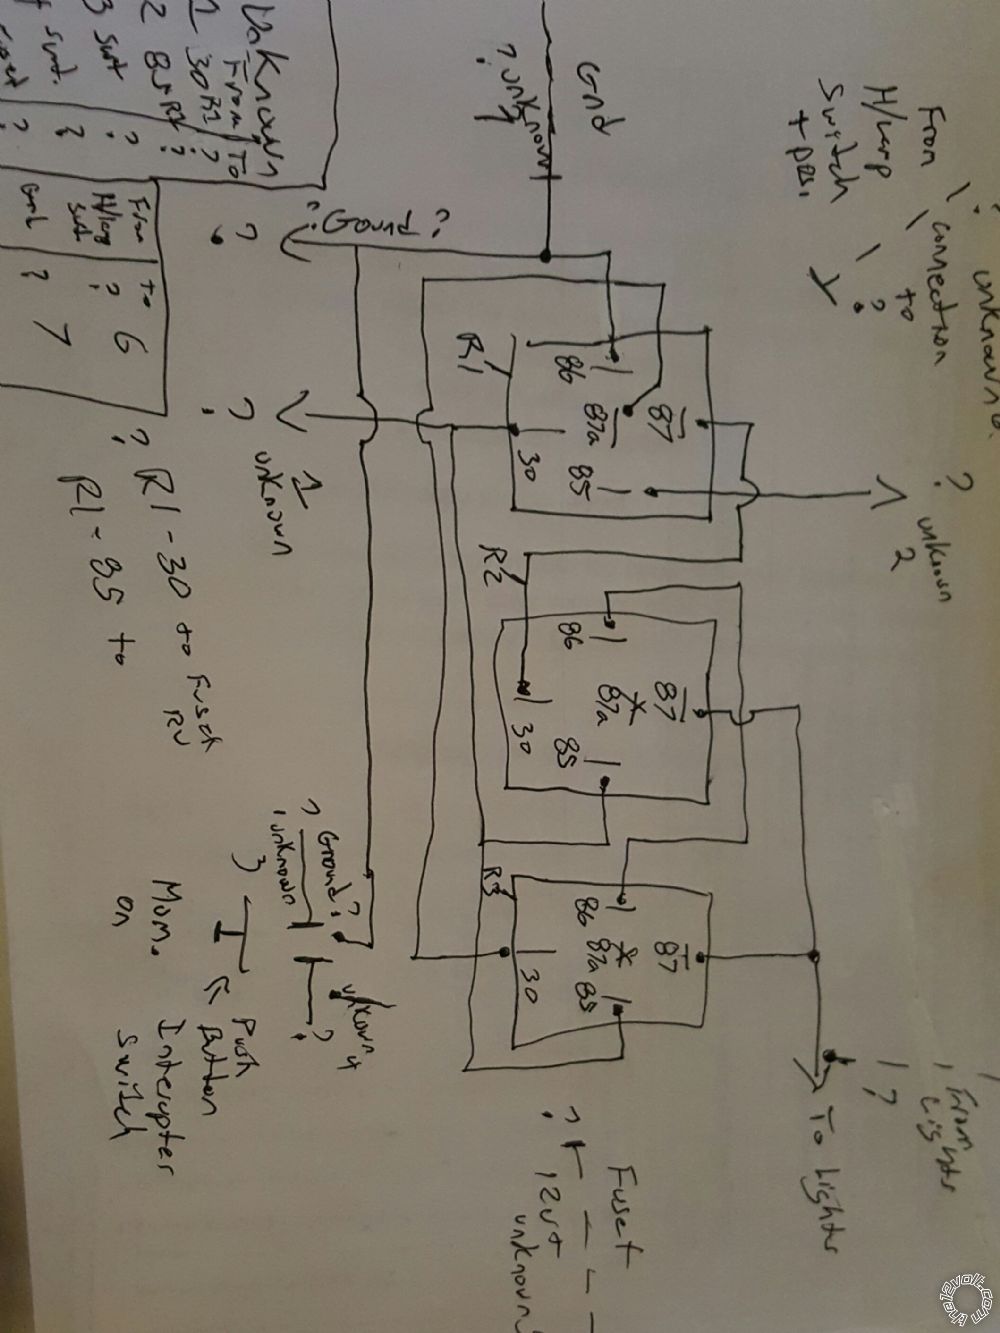 Unknown
From | To
1 30 R1 ?
2 85 R1 ?
3 swt ?
swt. ?
From To
H/lamp swt ? 6
Gnd ? 7
Gnd
? unknown
From
H/lamp
Switch
+ pos.
unknown
connection
to
?
? Ground ?
?
?
1
unknown
R1
86
87a
87
30
85
? unknown
2
R2
86
87a
87
30
85
R3
86
87a
87
30
85
? R1-30 to Fused
R1-85 to
? Ground ?
unknown
3
unknown 4
?
Mom.
on
Push
Button
Interupter
Switch
From
Lights
?
To Lights
Fused
12v+
unknown
?
the12volt.com